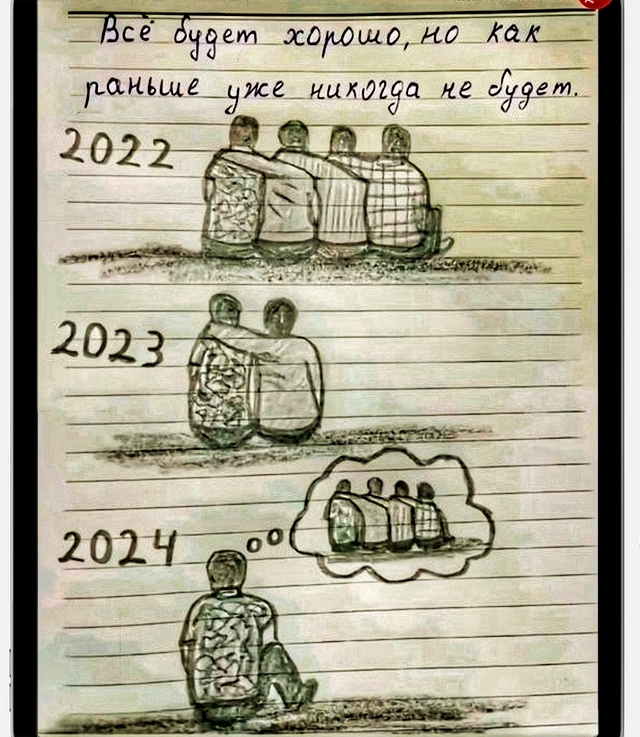 Всё будет хорошо, но как
раньше уже никогда не будет.
2022
2023
2024